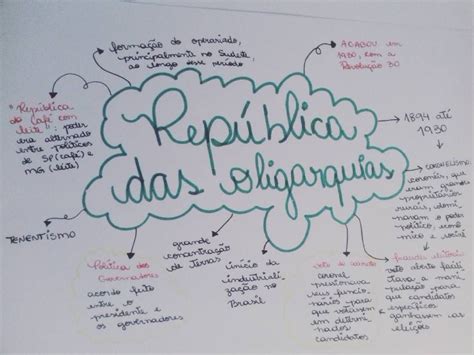 formação do operariado,
principalmente no Sudeste,
ao longo desse período
ACABOU em
1930, com a
Revolução 30
"República
do Café com
leite": poder
era alternado
entre políticos
de SP (café) e
MG (leite)
República
das oligarquias
1894 até
1930
CORONELISMO:
coronéis, que
eram grandes
proprietários
rurais, domi-
navam o poder
político, econô-
mico e social
TENENTISMO
Política dos
Governadores
acordo feito
entre o
presidente e
os governadores
grande
concentração
de terras
início da
industriali-
zação no
Brasil
voto de cabresto
coronel
pressionava
seus funcio-
nários para
que votassem
em determi-
nados candidatos
fraude eleitoral
voto aberto facili-
tava a mani-
pulação para
que candidatos
específicos
ganhassem as
eleições